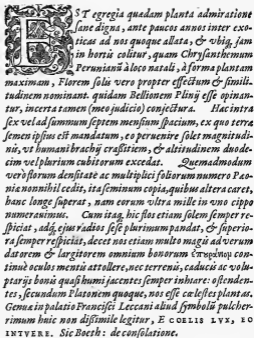 EST egregia quædam planta admiratione
sane digna, ante paucos annos inter exo-
ticas ad nos quoque allata, & ubiq; Iam
in hortis colitur, quam Chrysanthemum
Peruuianū à loco natali, à forma plantam
maximam, Florem solis vero propter effectum & simili-
tudinem nominant. quidam Bellionem Plinij esse opinan-
tur, incerta tamen (meo judicio) conjectura. Hac intra
sex vel ad summum septem mensium spacium, ex quo terræ
semen ipsius est mandatum, eo peruenire solet magnitudi-
nis, ut humani brachij crassitiem, & altitudinem duode-
cim vel plurium cubitorum excedat. Quemadmodum
verò florum densitate ac multiplici foliorum numero Pæo-
nia nonnihil cedit, ita seminum copia, quibus altera caret,
hanc longe superat, nam eorum ultra mille in uno cippo
numerauimus. Cum itaq; hic flos etiam solem semper re-
spiciat, adq́; ejus radios sese plurimum pandat, & superio-
ra semper respiciat, decet nos etiam multo magis ad verum
datorem & largitorem omnium bonorum
continuè oculos mentis attollere, nec terrenis, caducis ac volu-
ptarijs bonis quasi humi jacentes semper inhiare: ostenden-
tes, secundum Platonem quoque, nos esse cælestes plantas.
Genuæ in palatio Francisci Leccani aliud symbolū pulcher-
rimum huic non dissimile legitur, E COELIS LVX, EO
INTVERE. Sic Boeth: de consolatione.